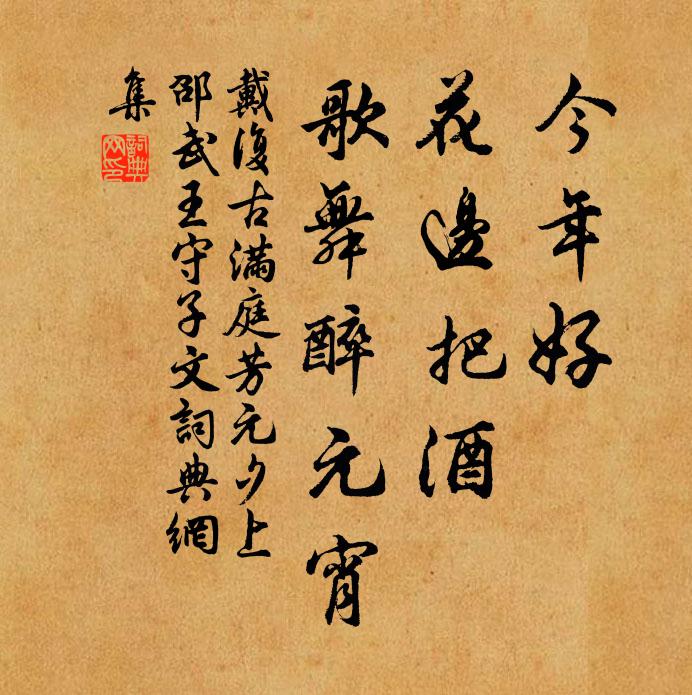 今年好
花邊把酒
歌舞醉元宵
戴復古滿庭芳元夕上
邵武王守子文詞典網
集
詞典網印